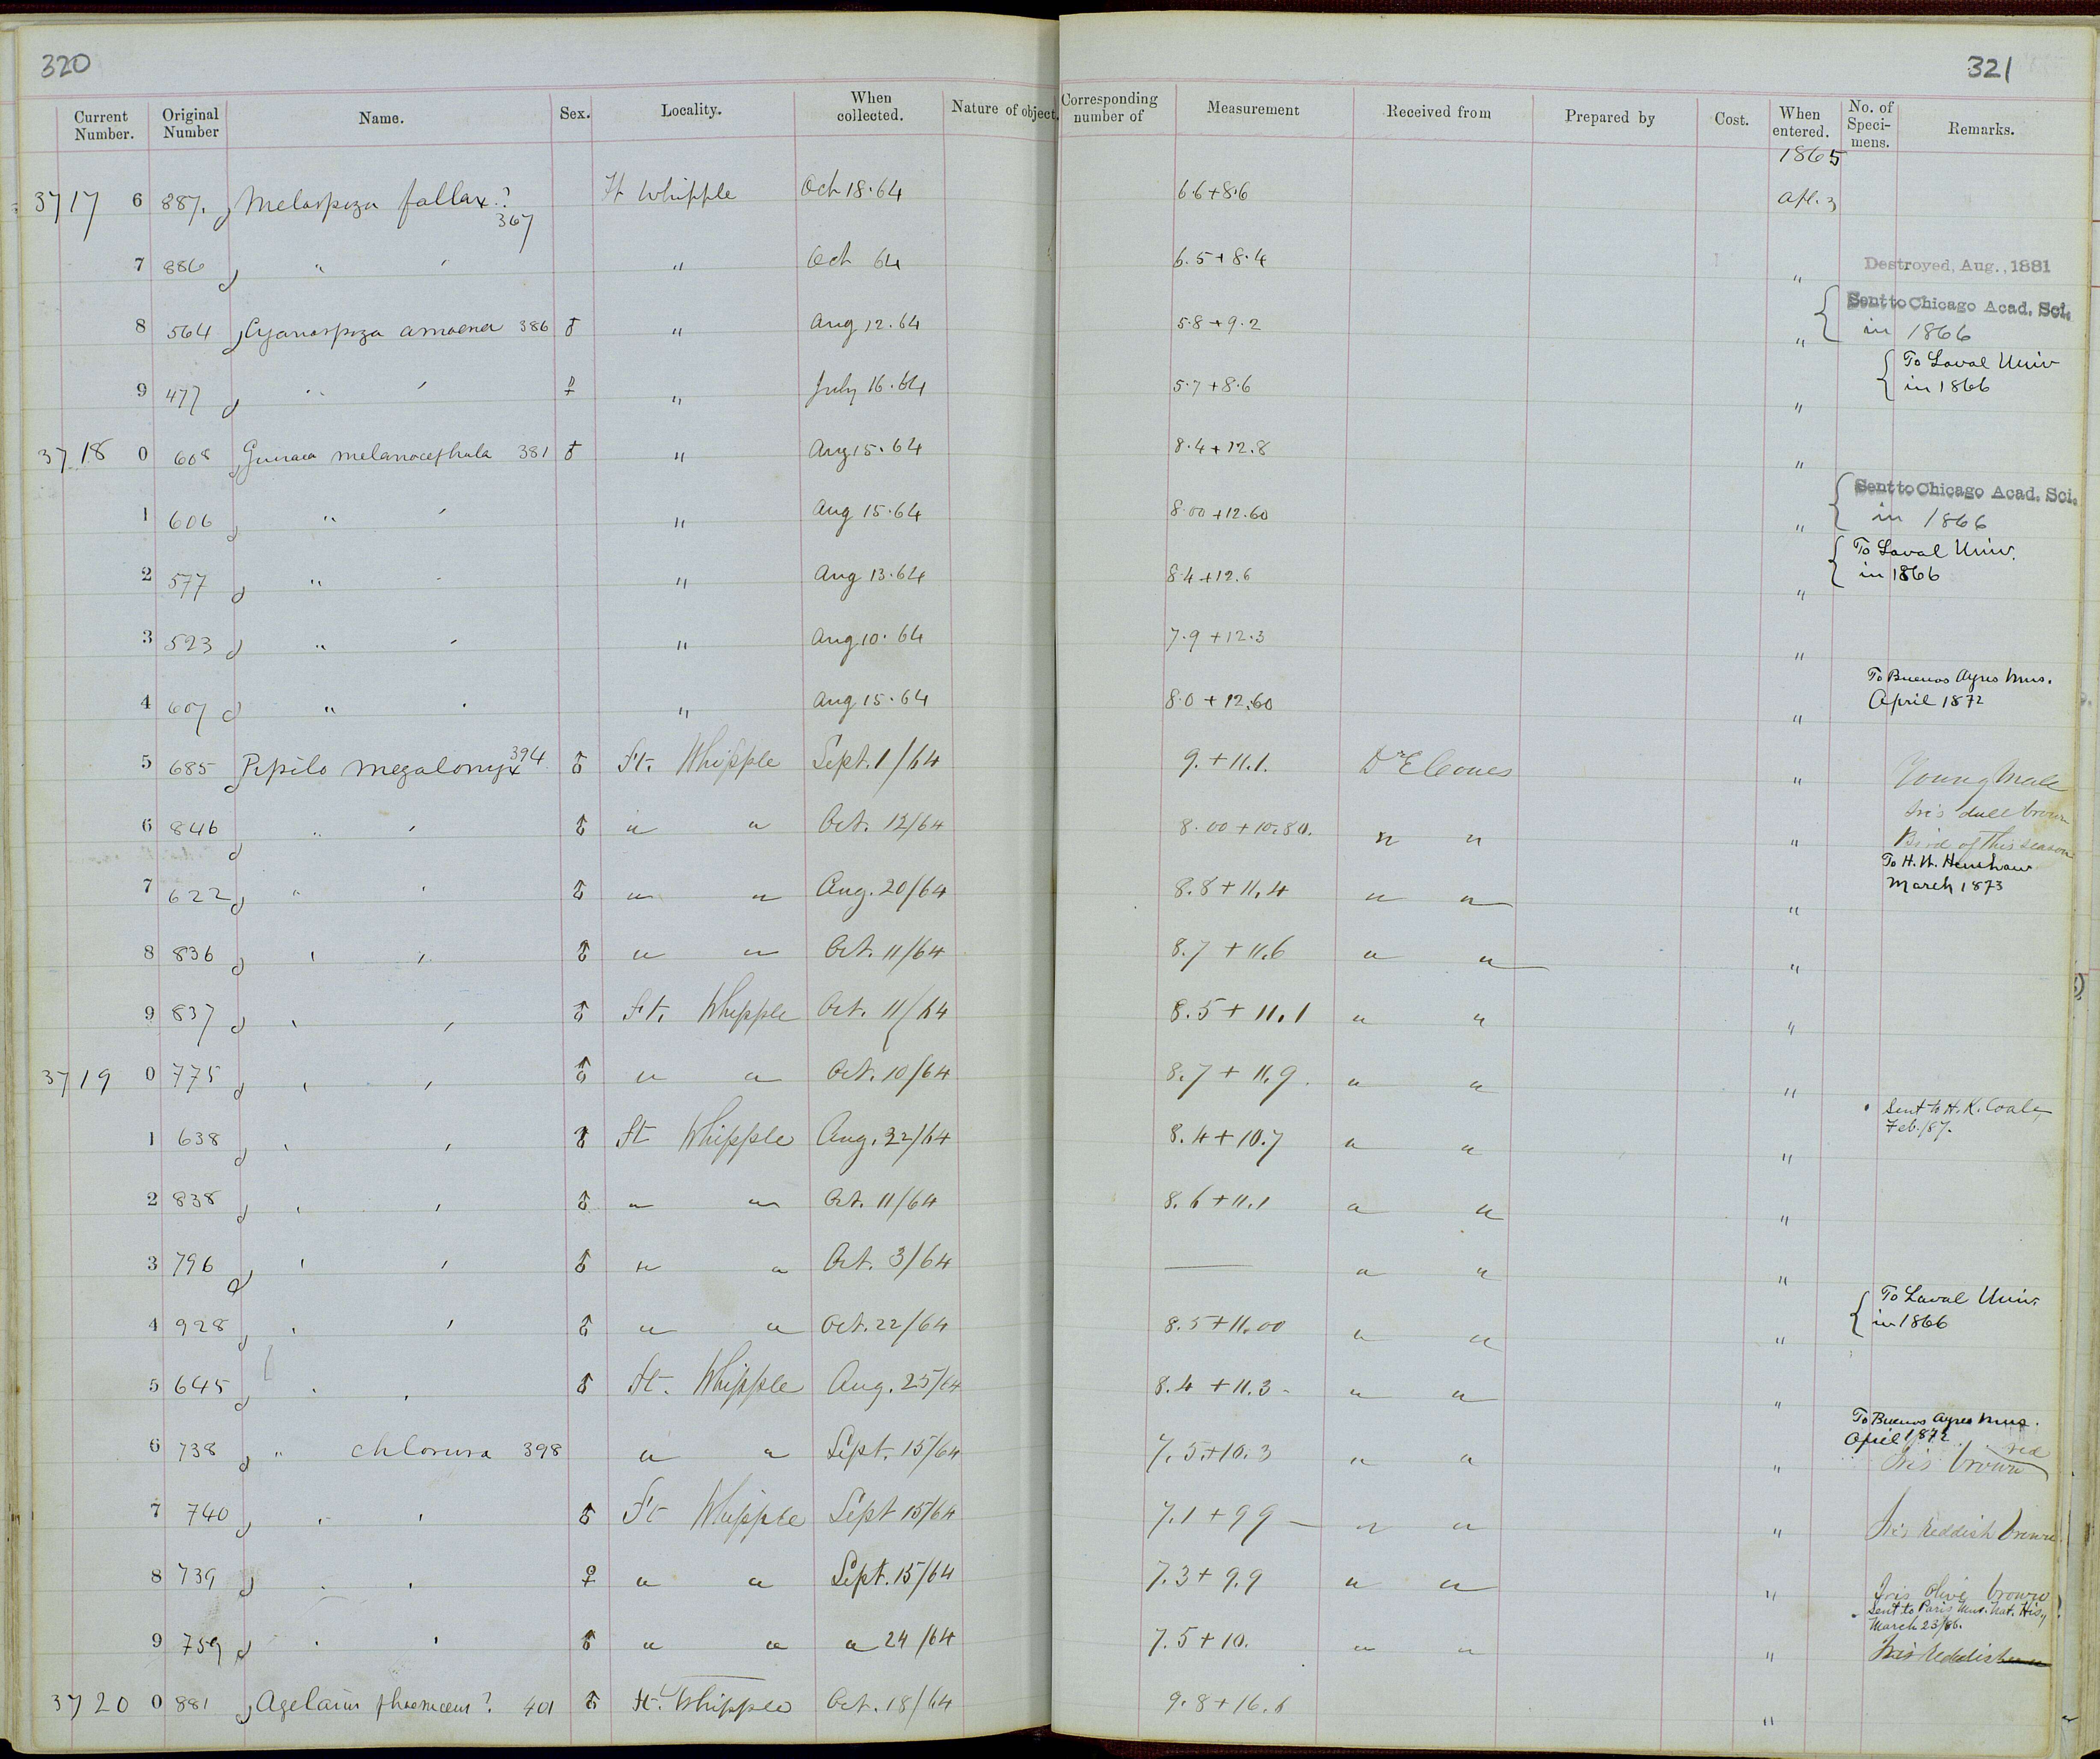 320
321
Current Number. Original Number Name. Sex. Locality. When collected. Nature of object. Corresponding number of Measurement Received from Prepared by Cost. When entered. No. of Speci-mens. Remarks.
1865
3717 6 887. Melospiza fallax? 367 Ft Whipple Oct 18.64 6.6+8.6 Apl. 3
7 886 " " " Oct 64 6.5+8.4 " Destroyed, Aug., 1881
8 564 Cyanospiza amoena 386 ♂ " Aug 12.64 5.8+9.2 " Sent to Chicago Acad. Sci.
in 1866
9 477 " " ♀ " July 16.64 5.7+8.6 " To Laval Univ
in 1866
3718 0 608 Guiraca melanocephala 381 ♂ " Aug 15.64 8.4+12.8 "
1 606 " " " Aug 15.64 8.00+12.60 " Sent to Chicago Acad. Sci.
in 1866
2 577 " " " Aug 13.64 8.4+12.6 " To Laval Univ.
in 1866
3 523 " " " Aug 10.64 7.9+12.3 "
4 607 " " " Aug 15.64 8.0+12.60 " To Buenos Ayres Mus.
April 1872
5 685 Pipilo megalonyx 394 ♂ Ft. Whipple Sept. 1/64 9.+11.1. Dr E Coues " Young Male
Iris dull brown
6 846 " " ♂ " " Oct. 12/64 8.00+10.80. " " " Bird of this season
7 622 " " ♂ " " Aug. 20/64 8.8+11.4 " " " To H. W. Henshaw
March 1873
8 836 " " ♂ " " Oct. 11/64 8.7+11.6 " " "
9 837 " " ♂ Ft. Whipple Oct. 11/64 8.5+11.1 " " "
3719 0 775 " " ♂ " " Oct. 10/64 8.7+11.9. " " "
1 638 " " ♂ Ft Whipple Aug. 22/64 8.4+10.7 " " " Sent to H. K. Coale,
Feb./87.
2 838 " " ♂ " " Oct. 11/64 8.6+11.1 " " "
3 796 " " ♂ " " Oct. 3/64 — " " "
4 928 " " ♂ " " Oct. 22/64 8.5+11.00 " " " To Laval Univ.
in 1866
5 645 " " ♂ Ft. Whipple Aug. 25/64 8.4+11.3- " " "
6 738 " chlorura 398 " " Sept. 15/64 7.5+10.3 " " " To Buenos Ayres Mus.
April 1872
Iris brown red
7 740 " " ♂ Ft Whipple Sept 15/64 7.1+99 — " " " Iris reddish brown
8 739 " " ♀ " " Sept. 15/64 7.3+9.9 " " " Iris olive brown
9 759 " " ♂ " " " 24/64 7.5+10. " " " Sent to Paris Mus. Nat. Hisy
March 23/86.
Iris reddish
3720 0 881 Agelaius phoeniceus? 401 ♂ Ft. Whipple Oct. 18/64 9.8+16.6 "